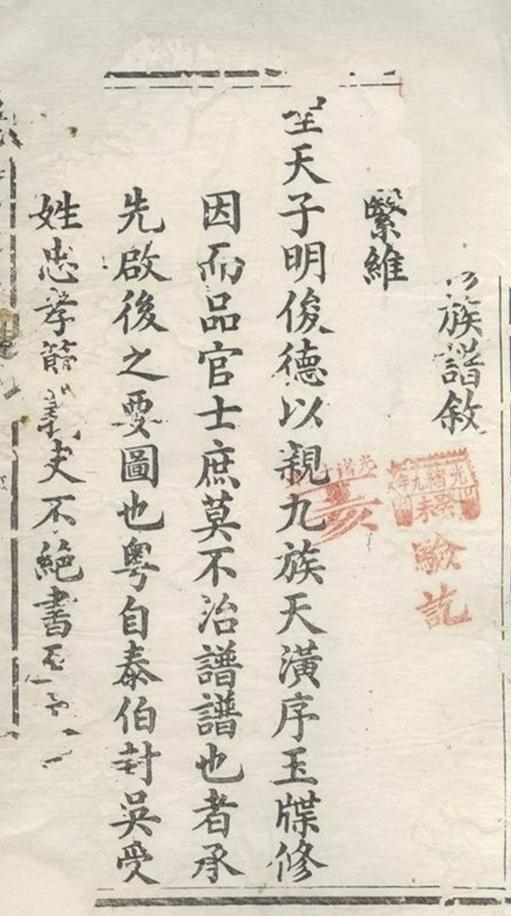 族譜敘
光緒九年
癸未
驗訖
亥
繄維
聖天子明俊德以親九族天潢序玉牒修
因而品官士庶莫不治譜譜也者承
先啟後之要圖也粵自泰伯封吳受
姓忠孝節義史不絕書至